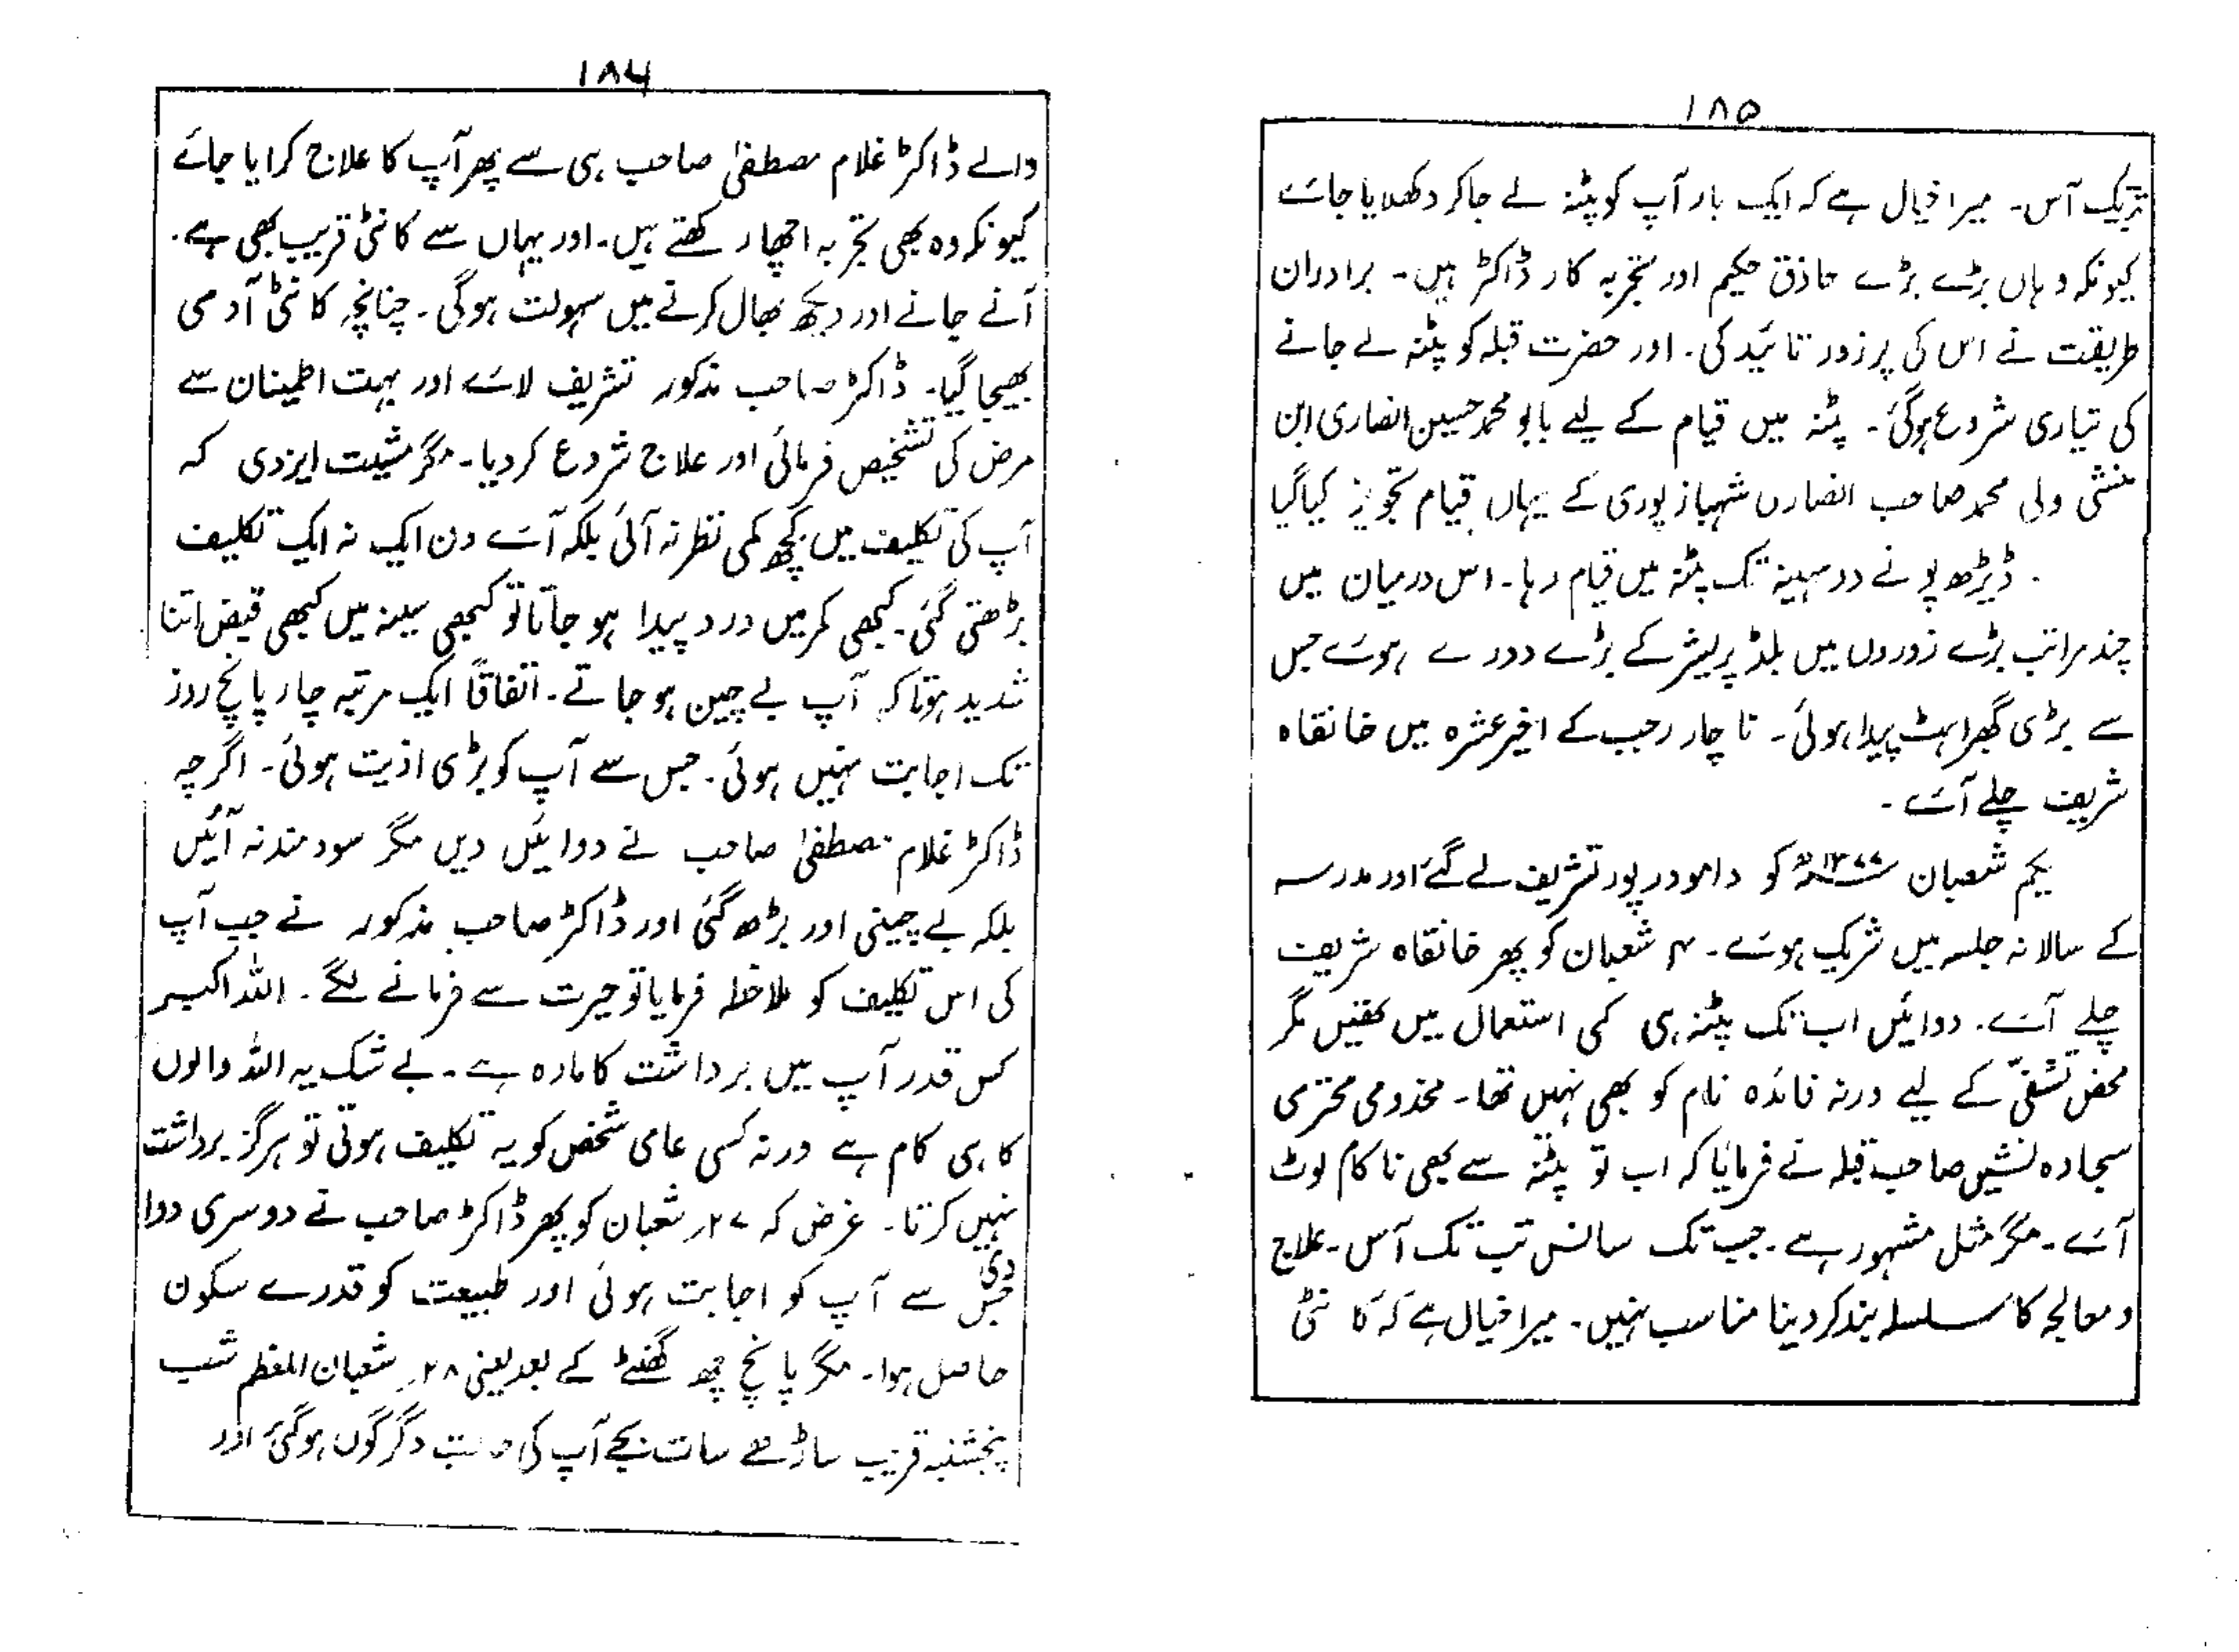 ۱۸۵
تریک آس۔ میرا خیال ہے کہ ایک بار آپ کو پٹنہ لے جاکر دکھلایا جائے
کیونکہ وہاں بڑے بڑے حاذق حکیم اور تجربہ کار ڈاکٹر ہیں۔ برادران
طریقت نے اس کی پرزور تائید کی۔ اور حضرت قبلہ کو پٹنہ لے جانے
کی تیاری شروع ہوگئی۔ پٹنہ میں قیام کے لیے بابو محمد حسین انصاری ابن
منشی ولی محمد صاحب انصاری شہباز پوری کے یہاں قیام تجویز کیا گیا
ڈیڑھ پونے دو مہینہ تک پٹنہ میں قیام رہا۔ اس درمیان میں
چند مراتب بڑے زوروں میں بلڈ پریشر کے بڑے دورے ہوئے جس
سے بڑی گھبراہٹ پیدا ہوئی۔ نا چار رجب کے اخیر عشرہ میں خانقاہ
شریف چلے آئے۔
یکم شعبان ۱۳۷۷ھ کو دامودر پور تشریف لے گئے اور مدرسہ
کے سالانہ جلسہ میں شریک ہوئے۔ ۴ شعبان کو پھر خانقاہ شریف
چلے آئے۔ دوائیں اب تک پٹنہ ہی کی استعمال میں تھیں مگر
محض تشفّی کے لیے ورنہ فائدہ نام کو بھی نہیں تھا۔ مخدومی محترمی
سجادہ نشیں صاحب قبلہ نے فرمایا کہ اب تو پٹنہ سے بھی ناکام لوٹ
آئے۔ مگر مثل مشہور ہے۔ جب تک سانس تب تک آس۔ علاج
و معالجہ کا سلسلہ بند کر دینا مناسب نہیں۔ میرا خیال ہے کہ کانٹی
۱۸۶
والے ڈاکٹر غلام مصطفیٰ صاحب ہی سے پھر آپ کا علاج کرایا جائے
کیونکہ وہ بھی تجربہ اچھا رکھتے ہیں۔ اور یہاں سے کانٹی قریب بھی ہے۔
آنے جانے اور دیکھ بھال کرنے میں سہولت ہوگی۔ چنانچہ کانٹی آدمی
بھیجا گیا۔ ڈاکٹر صاحب مذکور تشریف لائے اور بہت اطمینان سے
مرض کی تشخیص فرمائی اور علاج شروع کردیا۔ مگر مشیت ایزدی کہ
آپ کی تکلیف میں کچھ کمی نظر نہ آئی بلکہ آئے دن ایک نہ ایک تکلیف
بڑھتی گئی۔ کبھی کمر میں درد پیدا ہو جاتا تو کبھی سینہ میں کبھی قبض اتنا
شدید ہوتا کہ آپ بے چین ہو جاتے۔ اتفاقاً ایک مرتبہ چار پانچ روز
تک اجابت نہیں ہوئی۔ جس سے آپ کو بڑی اذیت ہوئی۔ اگرچہ
ڈاکٹر غلام مصطفیٰ صاحب نے دوائیں دیں مگر سود مند نہ آئیں
بلکہ بے چینی اور بڑھ گئی اور ڈاکٹر صاحب مذکور نے جب آپ
کی اس تکلیف کو ملاحظہ فرمایا تو حیرت سے فرمانے لگے۔ اللہ اکبر
کس قدر آپ میں برداشت کا مادہ ہے۔ بے شک یہ اللہ والوں
کا ہی کام ہے ورنہ کسی عامی شخص کو یہ تکلیف ہوتی تو ہرگز برداشت
نہیں کرتا۔ غرض کہ ۲۷ر شعبان کو پھر ڈاکٹر صاحب نے دوسری دوا
دی جس سے آپ کو اجابت ہوئی اور طبیعت کو قدرے سکون
حاصل ہوا۔ مگر پانچ چھ گھنٹے کے بعد یعنی ۲۸ر شعبان المعظم شب
پنجشنبہ قریب ساڑھے سات بجے آپ کی حالت دگرگوں ہوگئی اور